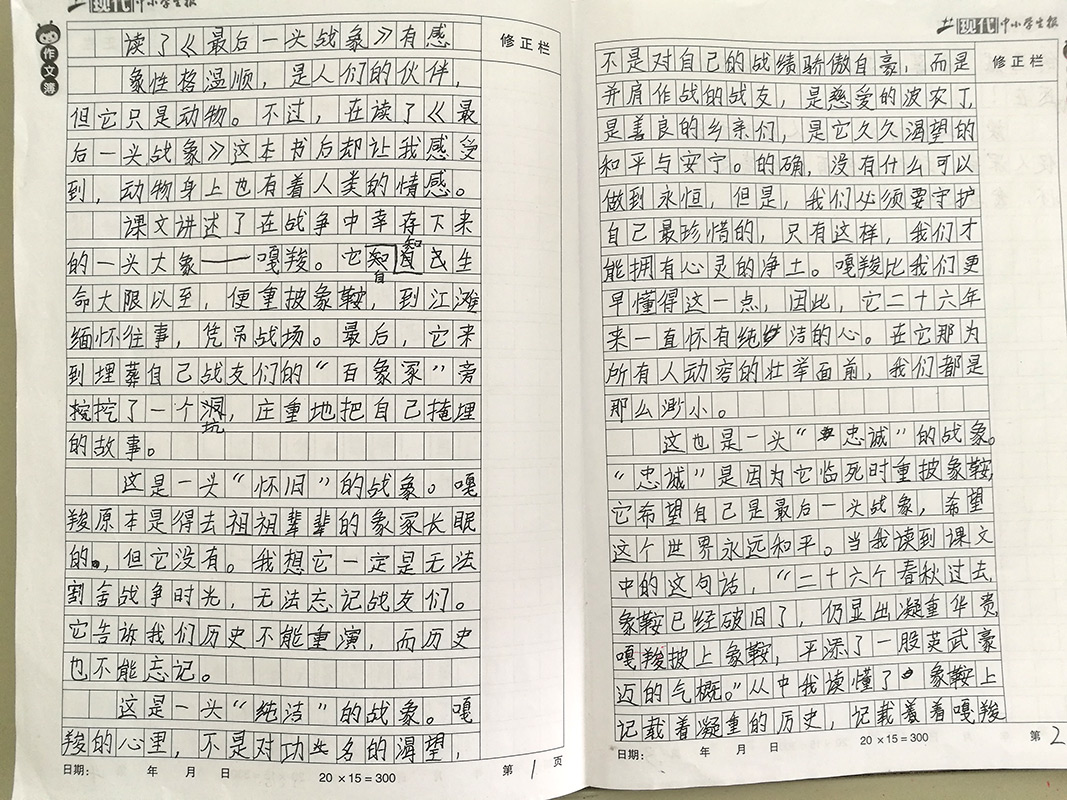 现代中小学生报
作文簿
读了《最后一头战象》有感
修正栏
象性格温顺，是人们的伙伴，
但它只是动物。不过，在读了《最
后一头战象》这本书后却让我感受
到，动物身上也有着人类的情感。
课文讲述了在战争中幸存下来
的一头大象——嘎羧。它知自知生
命大限以至，便重披象鞍，到江滩
缅怀往事，凭吊战场。最后，它来
到埋葬自己战友们的“百象冢”旁
挖挖了一个坑，庄重地把自己掩埋
的故事。
这是一头“怀旧”的战象。嘎
羧原本是得去祖祖辈辈的象冢长眠
的，但它没有。我想它一定是无法
割舍战争时光，无法忘记战友们。
它告诉我们历史不能重演，而历史
也不能忘记。
这是一头“纯洁”的战象。嘎
羧的心里，不是对功名的渴望，
日期： 年 月 日
20×15=300
第 1 页
现代中小学生报
修正栏
不是对自己的战绩骄傲自豪，而是
并肩作战的战友，是慈爱的波农丁
是善良的乡亲们，是它久久渴望的
和平与安宁。的确，没有什么可以
做到永恒，但是，我们必须要守护
自己最珍惜的，只有这样，我们才
能拥有心灵的净土。嘎羧比我们更
早懂得这一点，因此，它二十六年
来一直怀有纯洁的心。在它那为
所有人动容的壮举面前，我们都是
那么渺小。
这也是一头“忠诚”的战象。
“忠诚”是因为它临死时重披象鞍，
它希望自己是最后一头战象，希望
这个世界永远和平。当我读到课文
中的这句话，“二十六个春秋过去，
象鞍已经破旧了，仍显出凝重华贵，
嘎羧披上象鞍，平添了一股英武豪
迈的气概。”从中我读懂了象鞍上
记载着凝重的历史，记载着着嘎羧
日期： 年 月 日
20×15=300
第 2